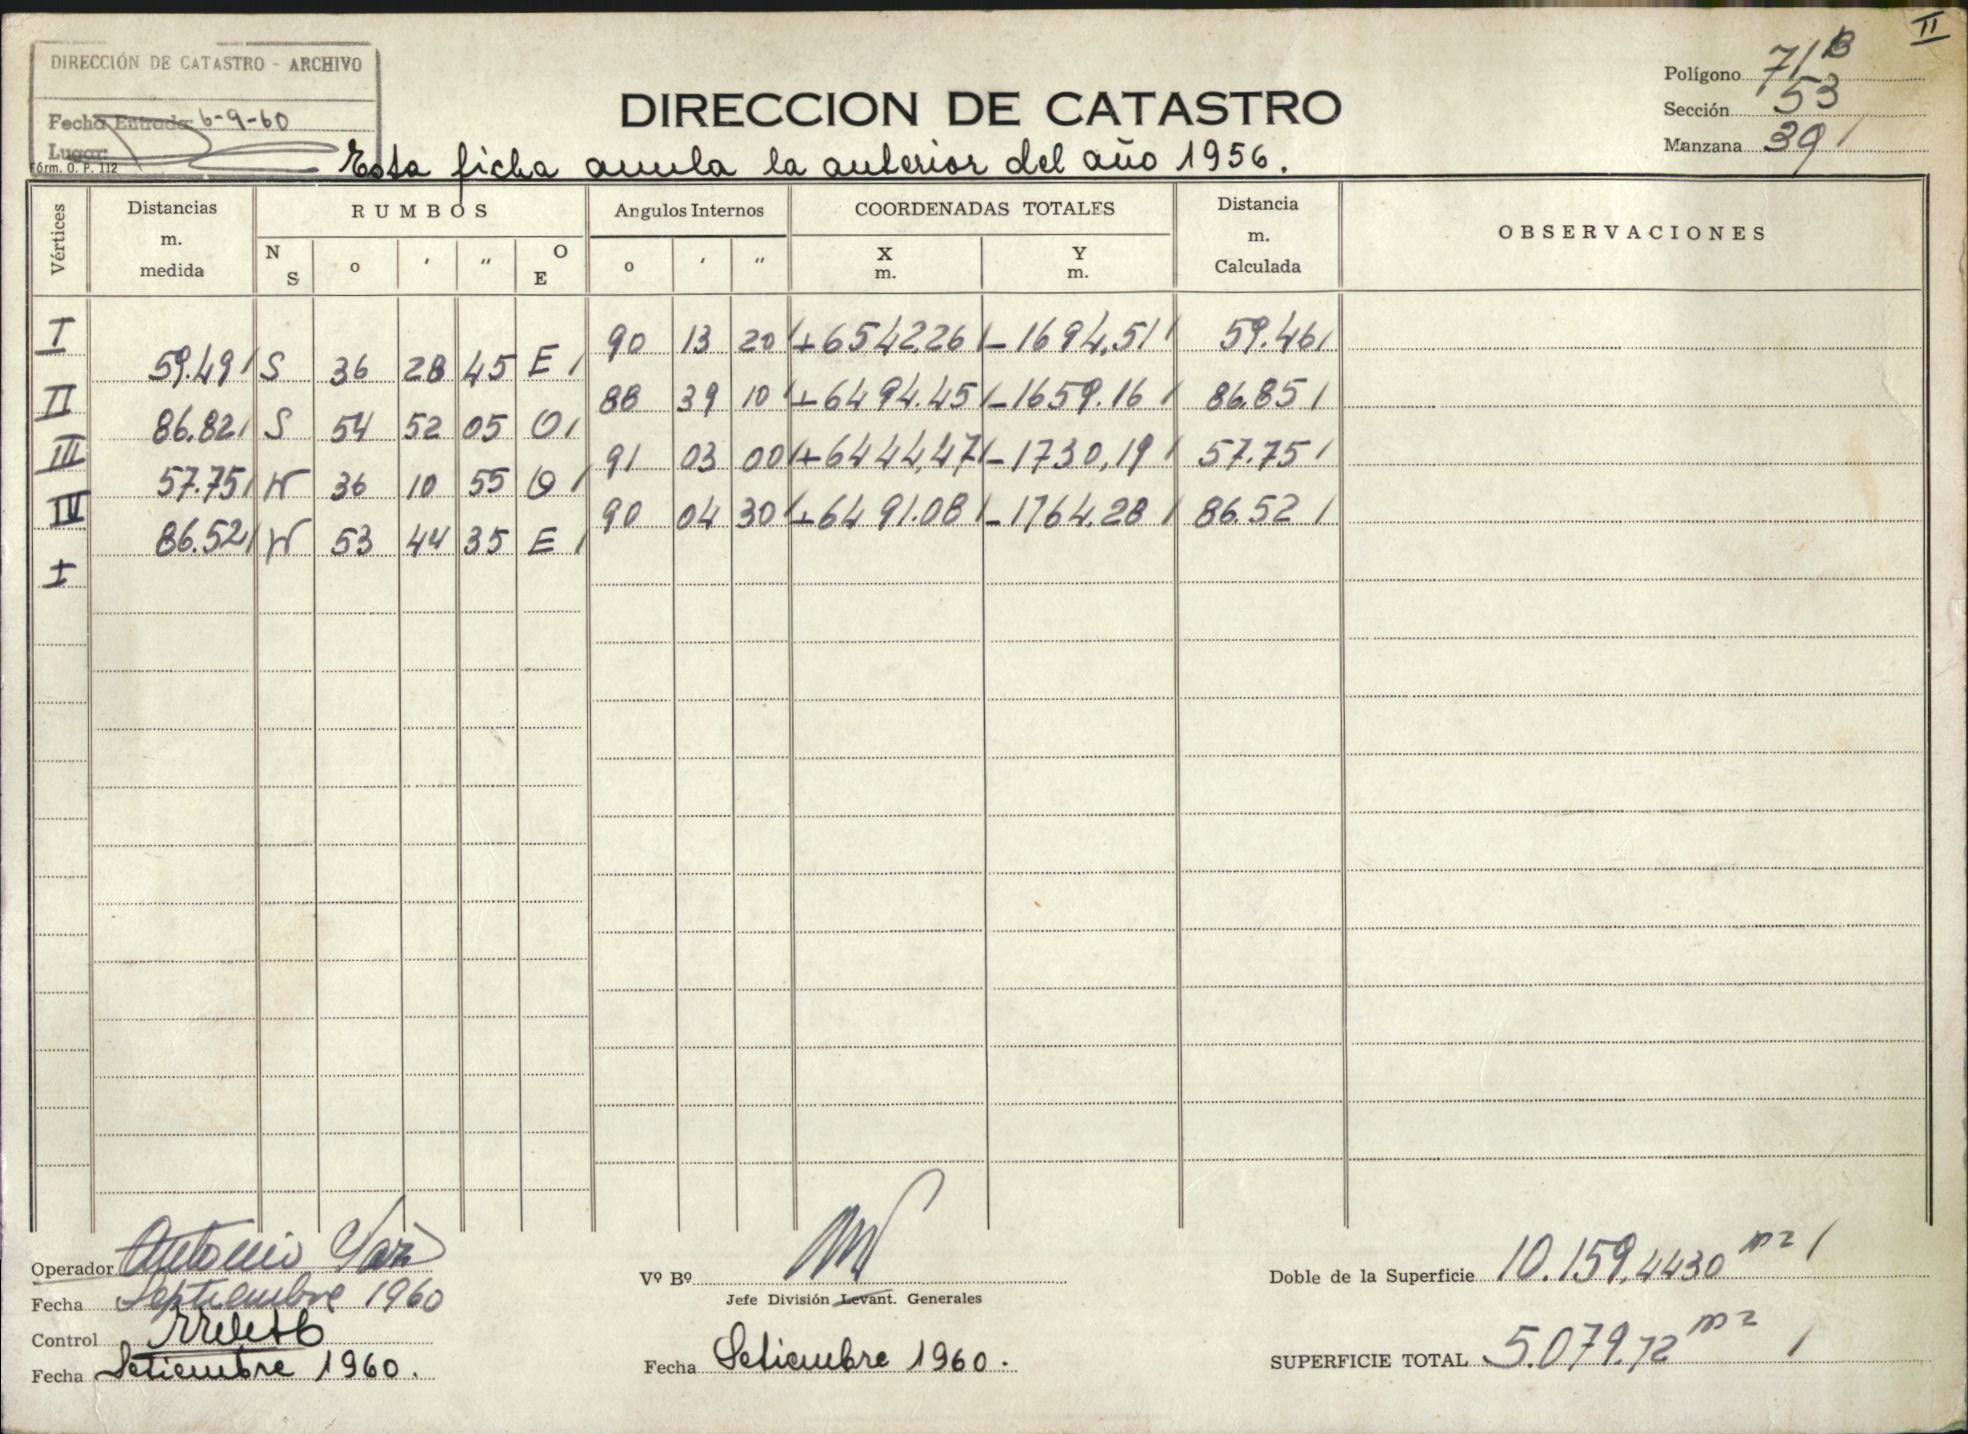 II
DIRECCIÓN DE CATASTRO - ARCHIVO
Fecha Entrada: 6-9-60
Lugar:
Fórm. O. P. 112
DIRECCION DE CATASTRO
Polígono 71B
Sección 53
Manzana 391
Esta ficha anula la anterior del año 1956.
Vértices Distancias m. medida RUMBOS Angulos Internos COORDENADAS TOTALES Distancia m. Calculada OBSERVACIONES
N S o ′ ″ O E o ′ ″ X m. Y m.
I 90 13 20 +6542.26 -1694,51 59.46
59.49 S 36 28 45 E
II 88 39 10 +6494.45 -1659.16 86.85
86.82 S 54 52 05 O
III 91 03 00 +6444,47 -1730,19 57.75
57.75 N 36 10 55 O
IV 90 04 30 +6491.08 -1764.28 86.52
86.52 N 53 44 35 E
I
Operador Antonio
Fecha Septiembre 1960
Control
Fecha Setiembre 1960.
Vº Bº
Jefe División Levant. Generales
Fecha Setiembre 1960.
Doble de la Superficie 10.159,4430 m2
SUPERFICIE TOTAL 5.079.72 m2